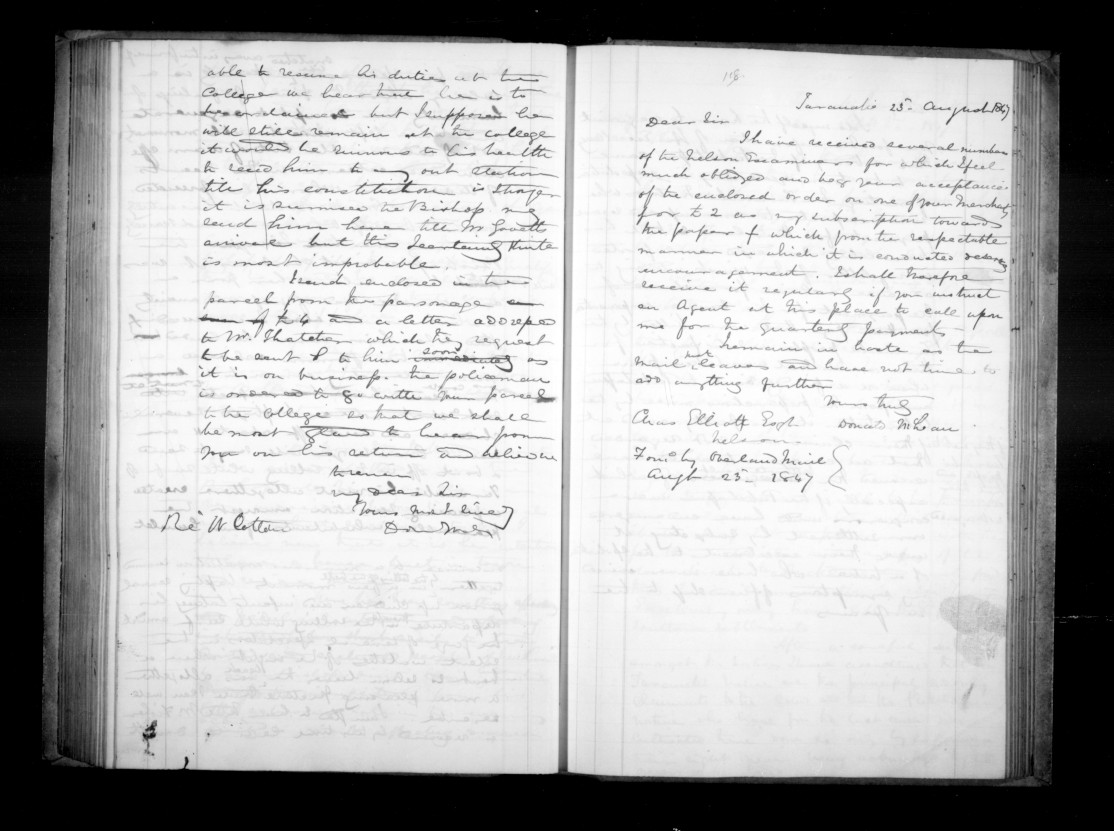 able to resume his duties at the
College we hear that he is to
be ordained but I suppose he
will still remain at the college
it would be ruinous to his health
to send him to any out station
till his constitution is stronger
it is surmised the Bishop may
send him here till Mr Govetts
arrival but this I certainly think
is most improbable.
I send enclosed in the
parcel from the parsonage
and a letter addressed
to Mr. Thatcher which they request
to be sent to him soon immediately as
it is on business. The policeman
is ordered to go with your parcel
to the College so that we shall
be most glad to hear from
you on his return and believe me
to remain
my dear Sir
Yours most sincerely
Revd W Cotton
118.
Taranaki 25th August 1847
Dear Sir
I have received several numbers
of the Nelson Examiner for which I feel
much obliged and beg your acceptance
of the enclosed order on one of your Merchants
for £2 as my subscription towards
the paper & which from the respectable
manner in which it is conducted deserves
encouragement. I shall therefore
receive it regularly if you instruct
an Agent at this place to call upon
me for the quarterly payments
I remain in haste as the
mail not leaves and have not time to
add anything further
Yours truly
Chas Elliott Esqr Donald McLean
Nelson
Forwd by Overland Mail
Augt 25th 1847